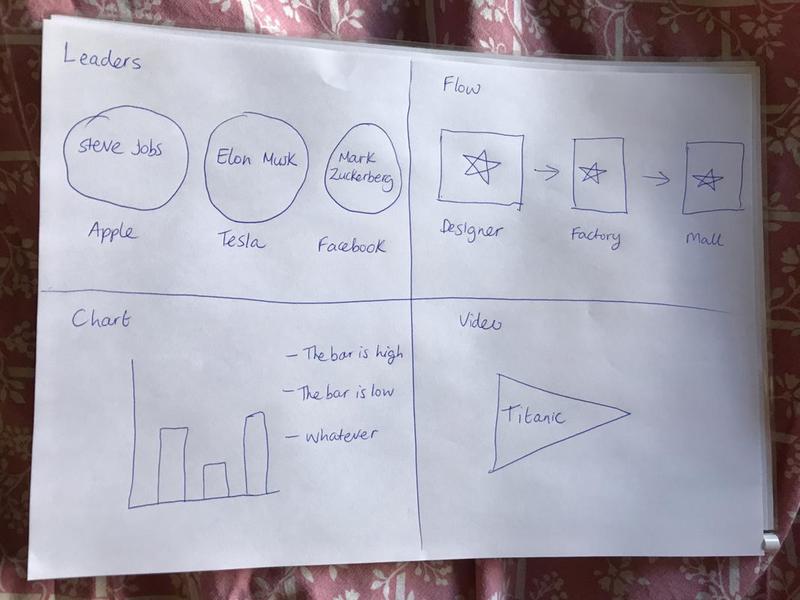 Leaders
Steve Jobs
Elon Musk
Mark
Zuckerberg
Apple
Tesla
Facebook
Flow
Designer
Factory
Mall
Chart
- The bar is high
- The bar is low
- whatever
Video
Titanic